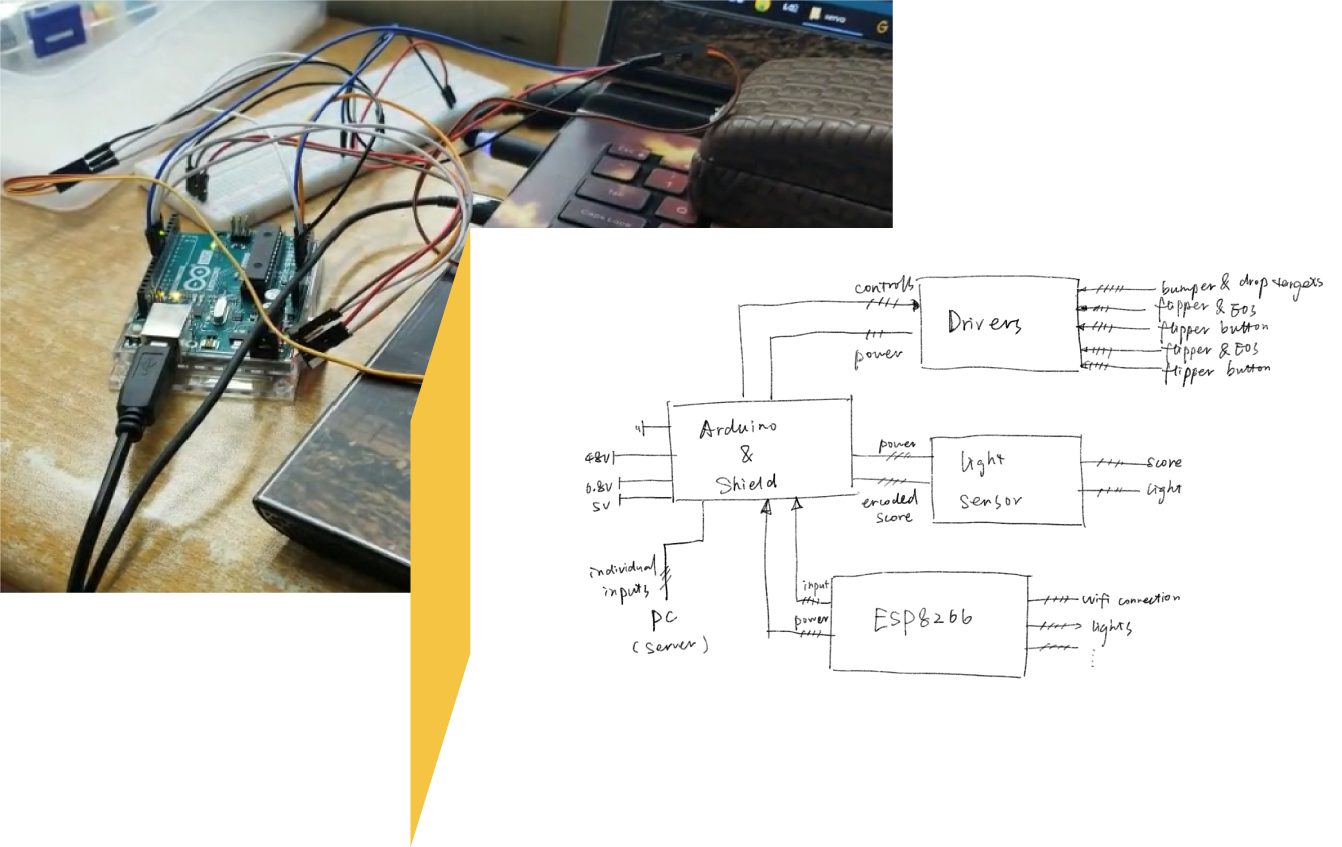 servo
G
Tab
Caps Lock
ARDUINO
controls
power
Drivers
bumper & drop targets
flipper & EOS
flipper button
flipper & EOS
flipper button
Arduino
&
Shield
48V
6.8V
5V
power
encoded
score
light
sensor
score
light
individual
inputs
PC
(server)
input
power
ESP8266
wifi connection
lights